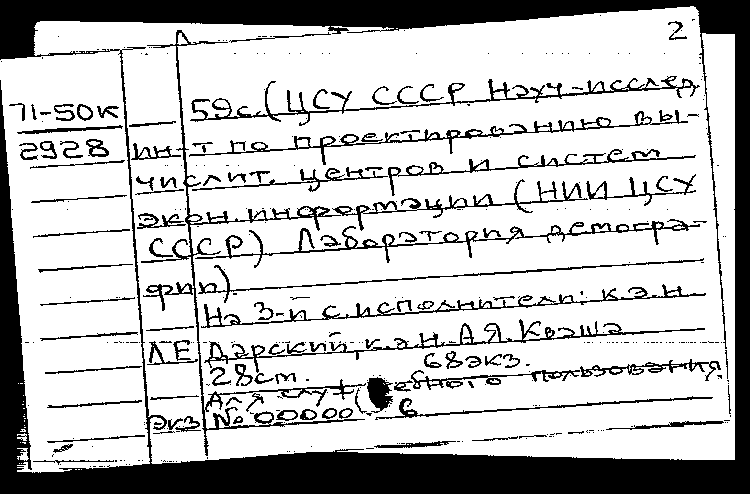 2
71-50к 59с. (ЦСУ СССР. Науч.-исслед.
2928 ин-т по проектированию вы-
числит. центров и систем
экон. информации (НИИ ЦСУ
СССР) Лаборатория демогра-
фии).
На 3-й с. исполнители: к.э.н.
Л Е Дарский, к.э.н. А.Я. Кваша
28см. 68экз.
Для служебного пользования.
Экз № 00000 6